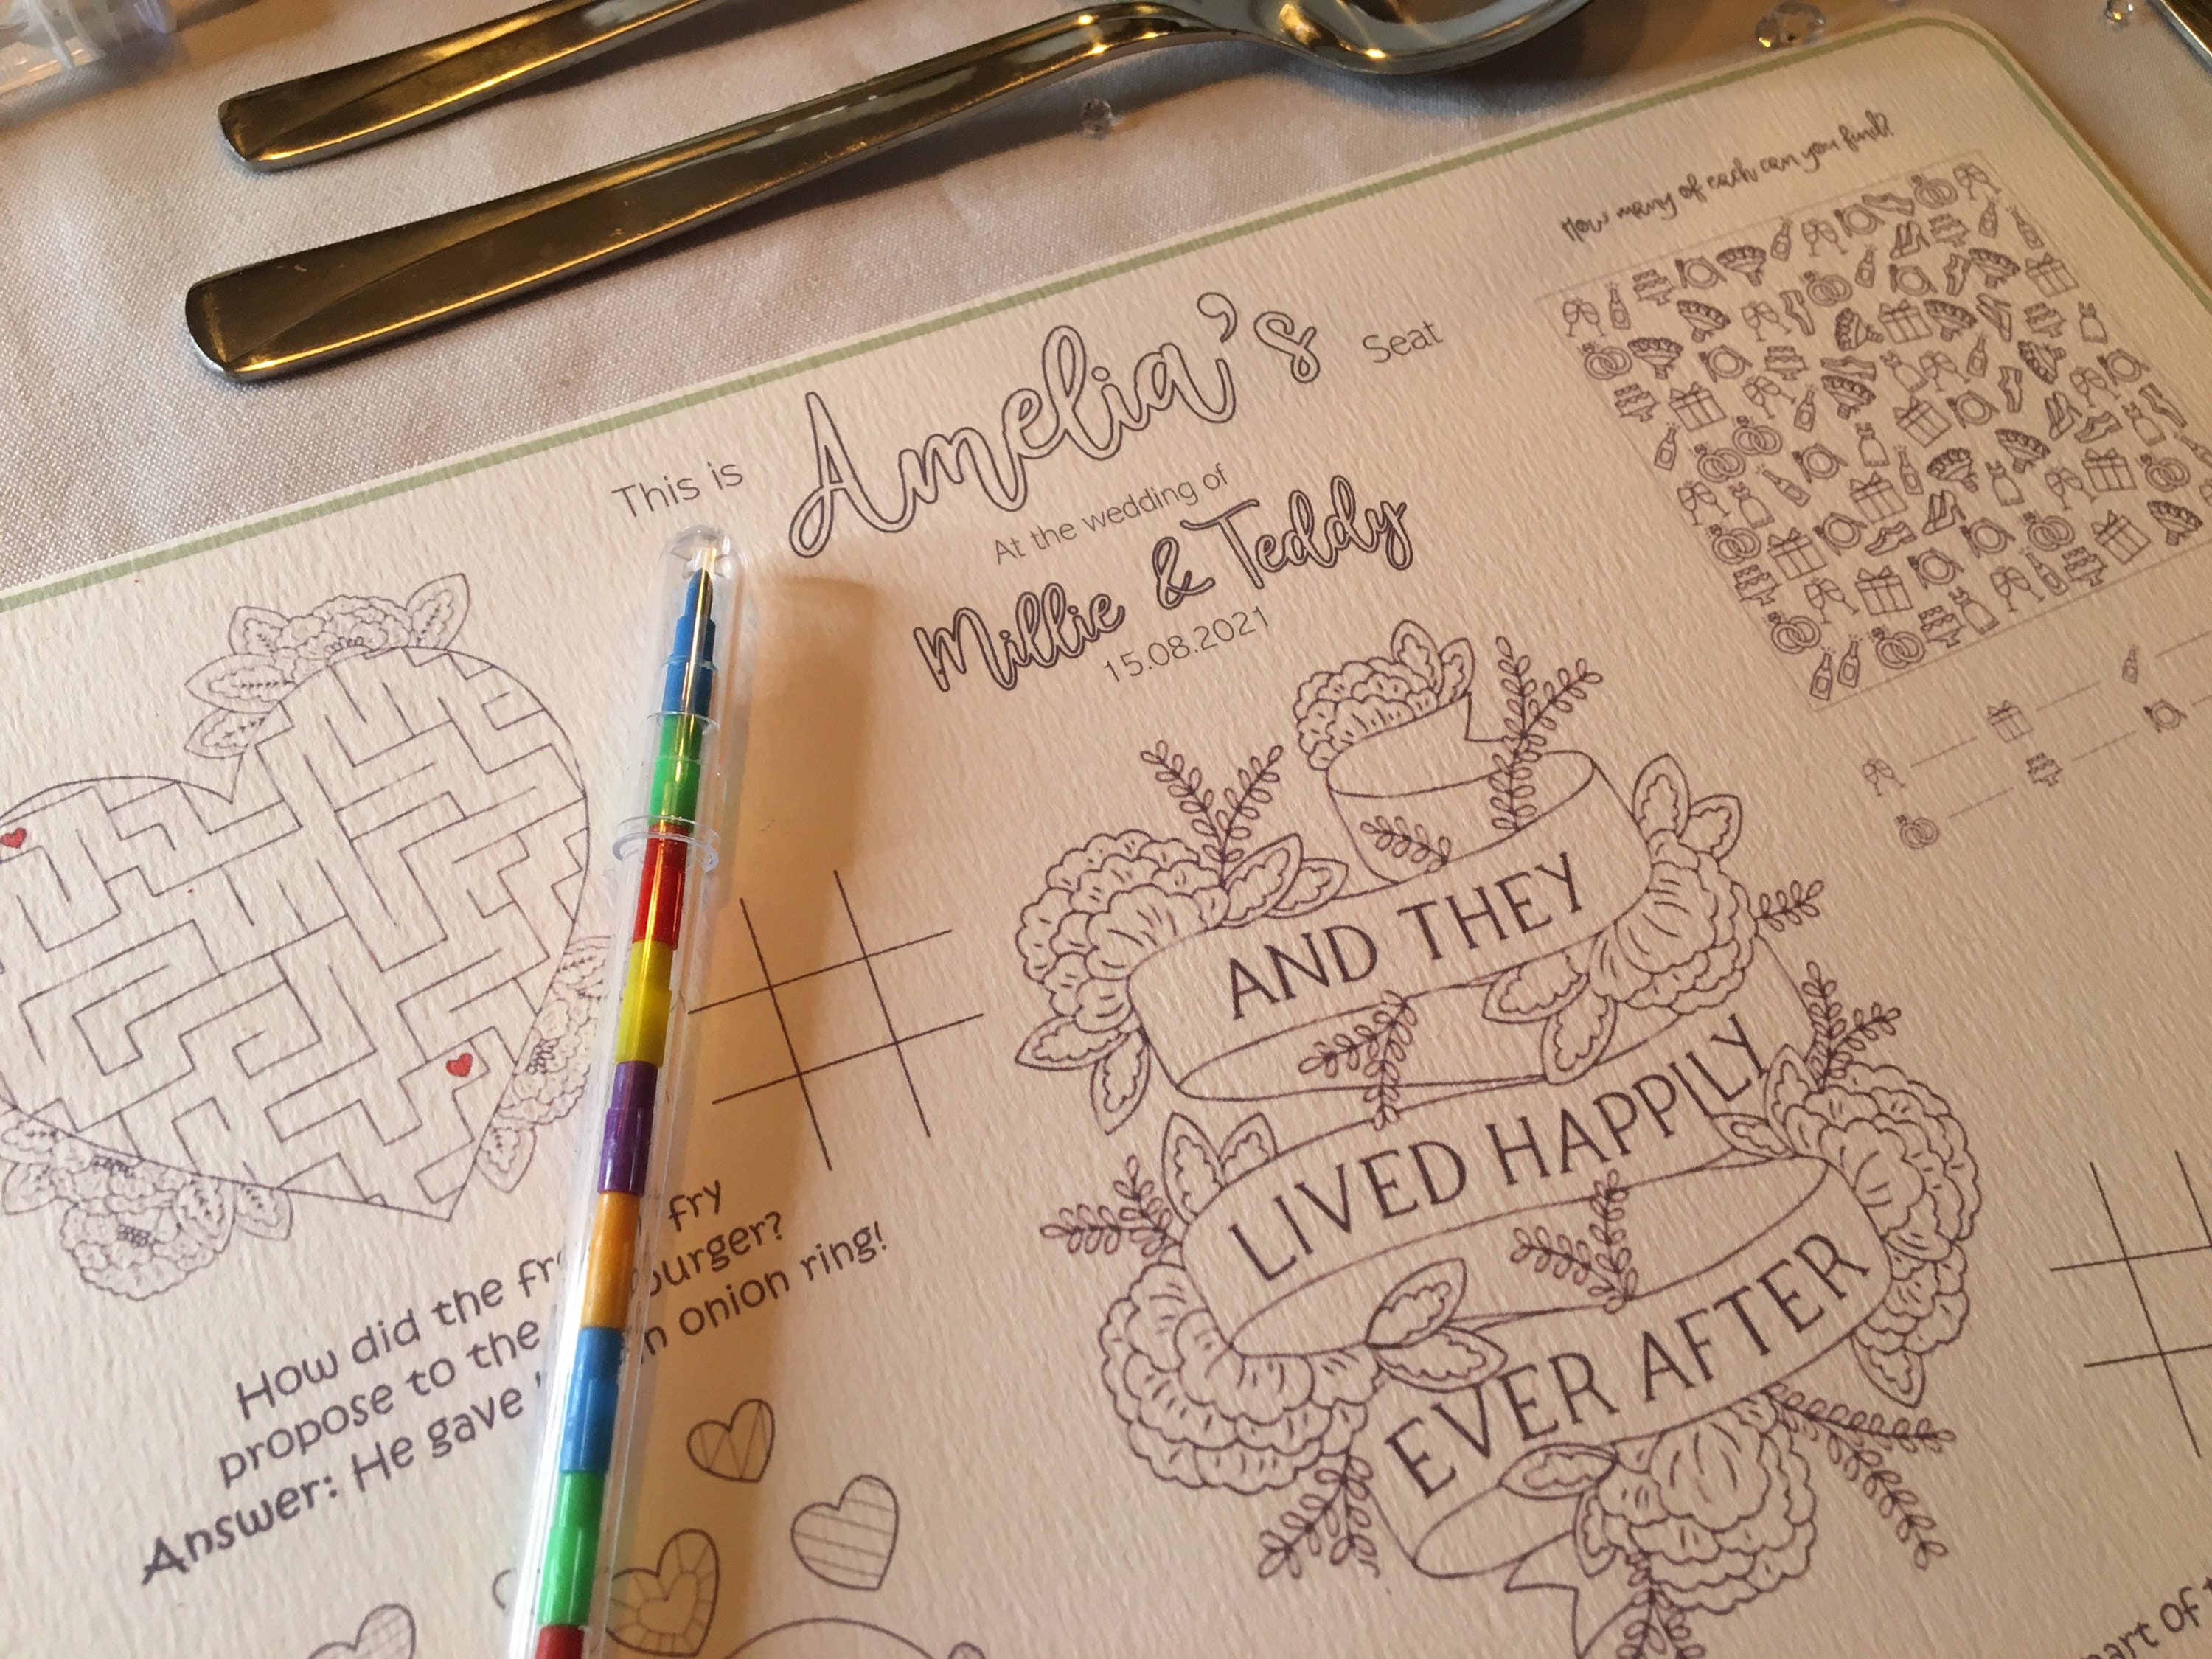 How many of each can you find?
This is Amelia's Seat
At the wedding of
Millie & Teddy
15.08.2021
AND THEY
LIVED HAPPILY
EVER AFTER
How did the fry
propose to the burger?
Answer: He gave onion ring!
of